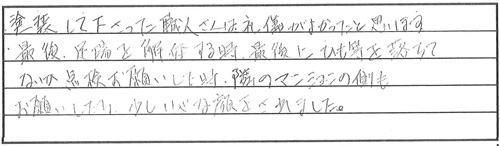 塗装して下さった職人さんは礼儀がよかったと思います
最後、足場を解体する時、最後にひも等を落ちて
ないか点検お願いした時、隣のマンションの側も
お願いしたら、少しいやな顔をされました。